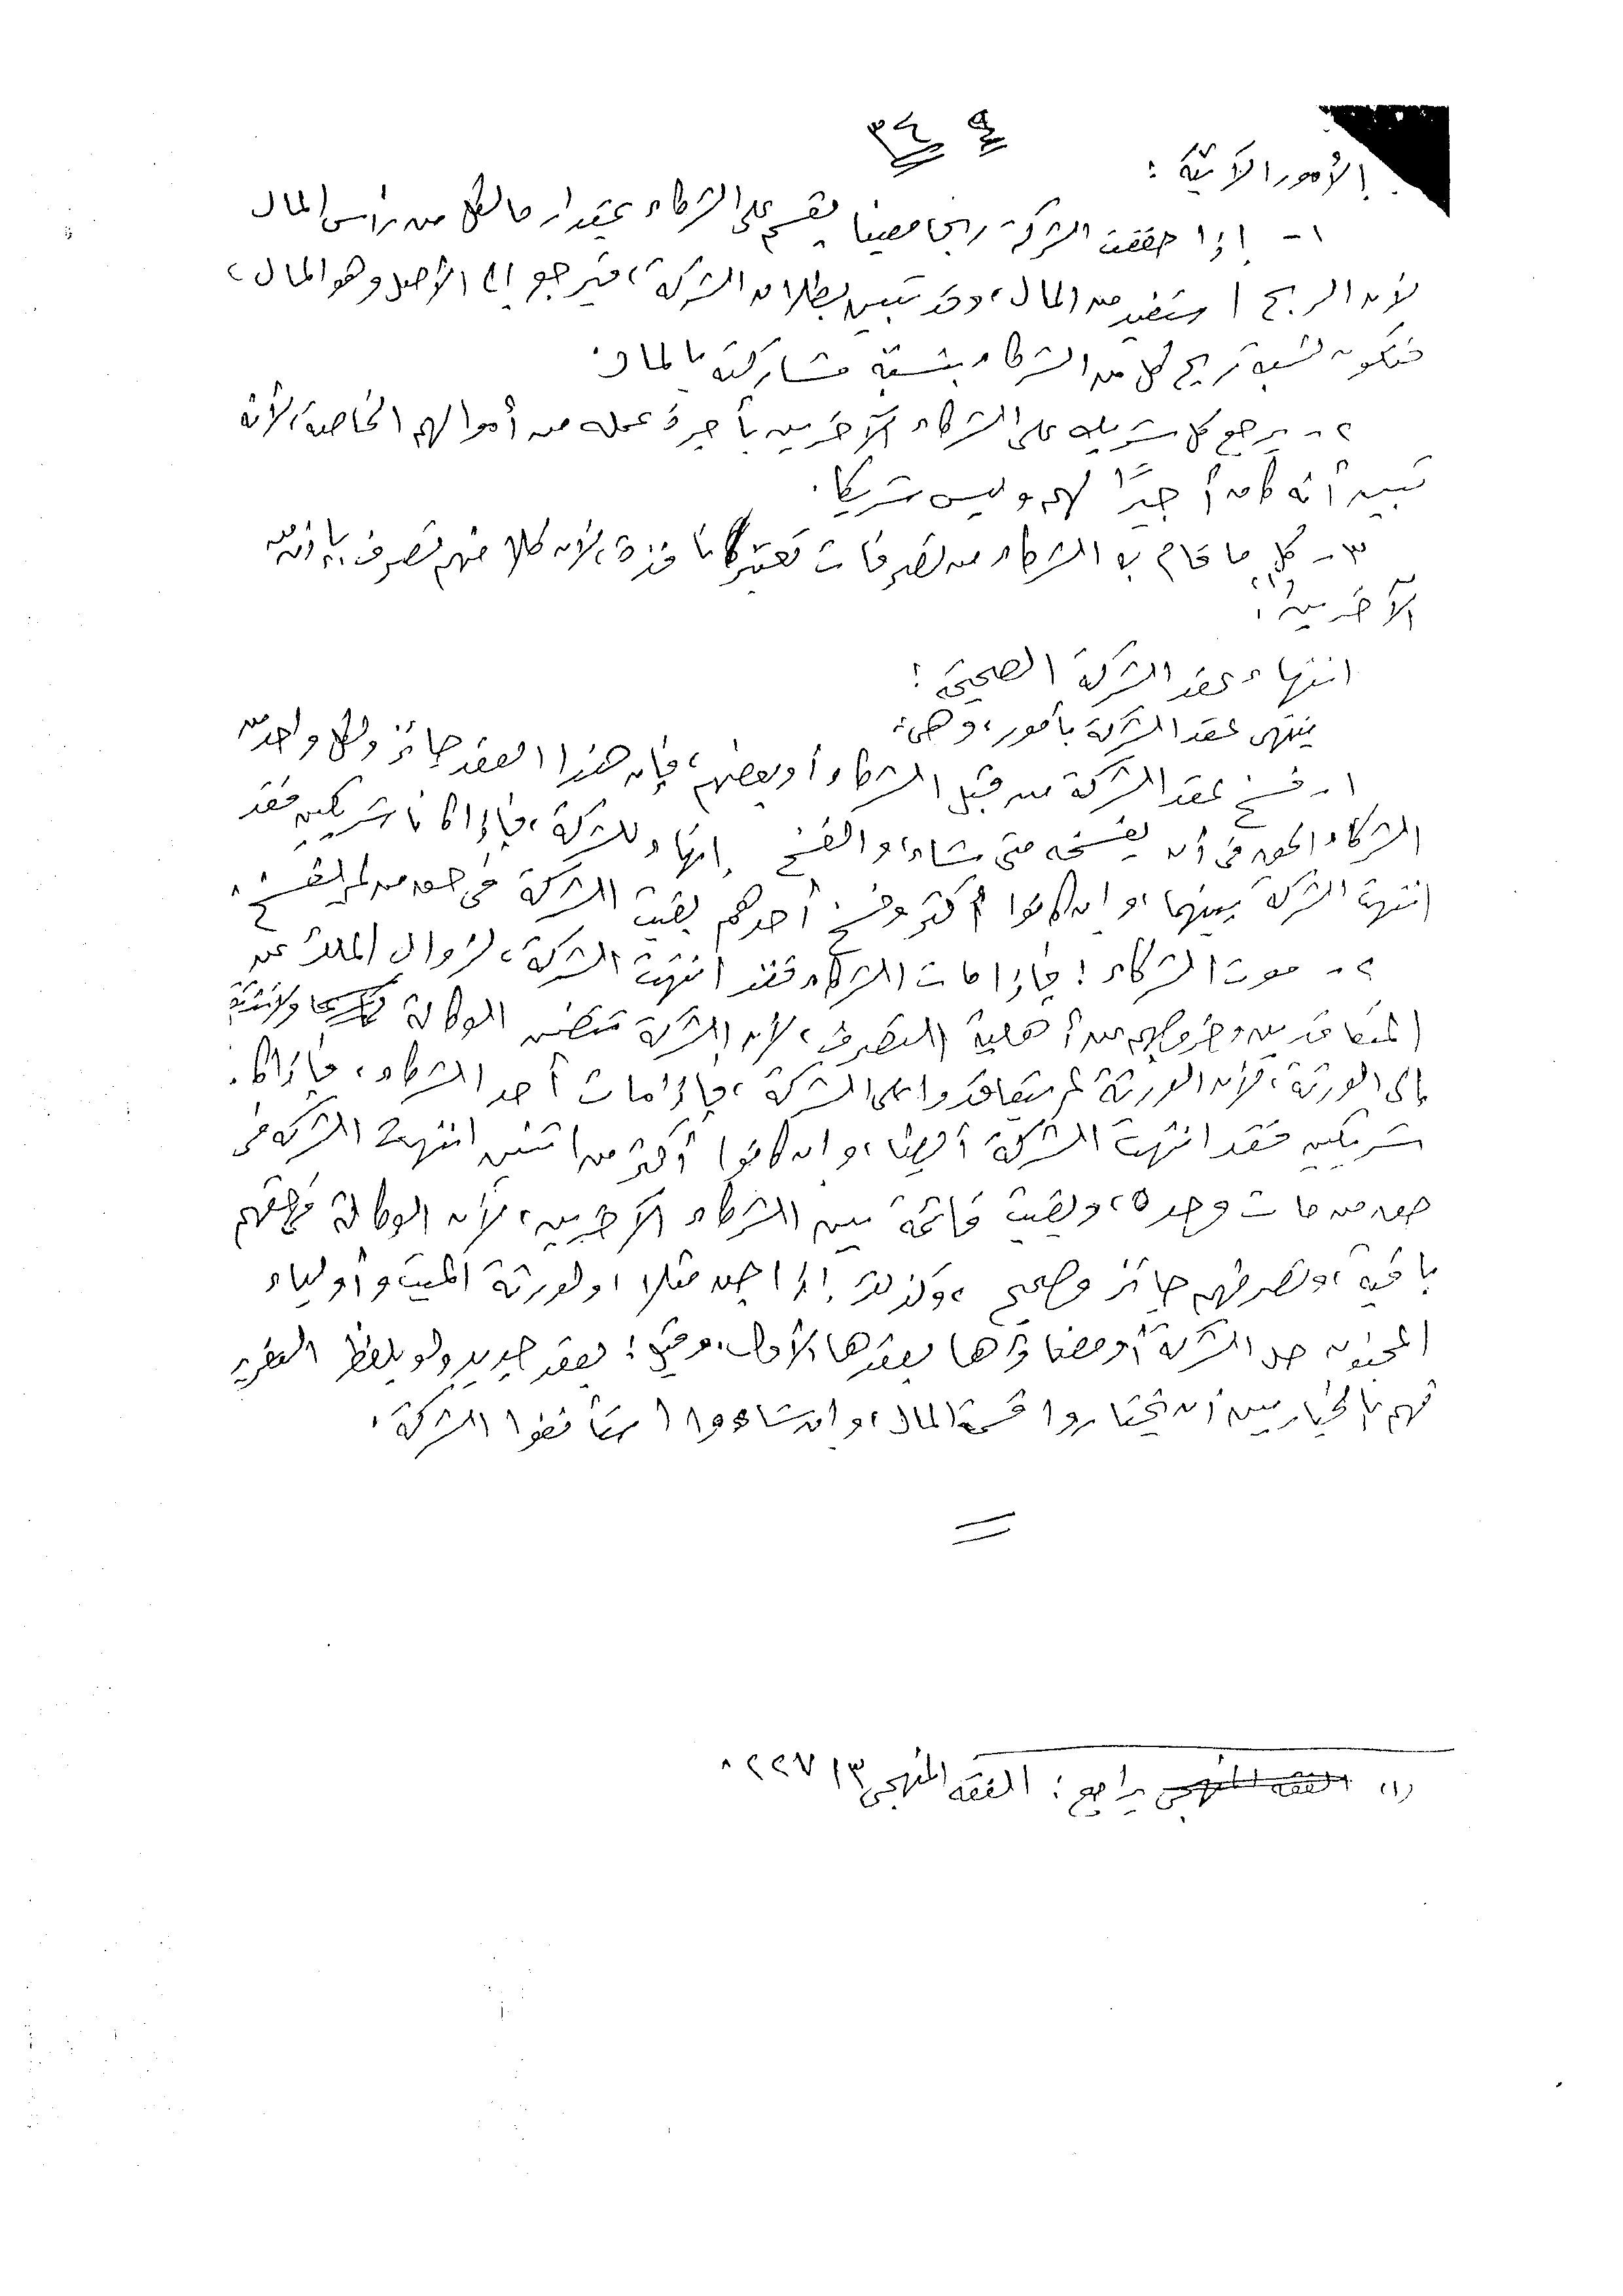 ٣٤ ٩
الأمور الآتية :
١- إذا حققت الشركة ربحا معينا يقسم على الشركاء بمقدار ما لكل من رأس المال
لأن الربح استفيد من المال، وقد تبين بطلان الشركة، فيرجع إلى الأصل وهو المال،
فتكون نسبة ربح كل من الشركاء بنسبة مشاركته بالمال.
٢- يرجع كل شريك على الشركاء الآخرين بأجرة عمله من أموالهم الخاصة، لأنه
تبين أنه كان أجيرًا لهم وليس شريكا.
٣- كل ما قام به الشركاء من تصرفات تعتبر نافذة، لأن كلا منهم تصرف بإذن من
الآخرين(١).
انتهاء عقد الشركة الصحيحة :
ينتهي عقد الشركة بأمور، وهي:
١- فسخ عقد الشركة من قبل الشركاء أو بعضهم، فإن هذا العقد جائز ولكل واحد من
الشركاء الحق في أن يفسخه متى شاء، والفسخ إنهاء للشركة، فإذا كانا شريكين فقد
انتهت الشركة بينهما، وإن كانوا أكثر وفسخ أحدهم بقيت الشركة في حق من لم يفسخ.
٢- موت الشركاء : فإذا مات الشركاء فقد انتهت الشركة، لزوال الملك عن
المتعاقدين وخروجهم من أهلية التصرف، لأن الشركة تتضمن الوكالة ولا تنتقل
إلى الورثة، لأن الورثة لم يتعاقدوا على الشركة، فإذا مات أحد الشركاء، فإذا كانا
شريكين فقد انتهت الشركة أيضا، وإن كانوا أكثر من اثنين انتهت الشركة في
حق من مات وحده، وبقيت قائمة بين الشركاء الآخرين، لأن الوكالة في حقهم
باقية، وتصرفهم جائز وصحيح، وكذلك إذا جن مثلا، ولورثة الميت وأولياء
المجنون حل الشركة أو إمضاؤها بعقدها الأول، وقيل : بعقد جديد ولو بلفظ التقرير
فهم بالخيار بين أن يختاروا قسمة المال، وإن شاءوا استأنفوا الشركة.
(١) الفقه المنهجي يراجع : الفقه المنهجي ٣/ ٢٢٧.